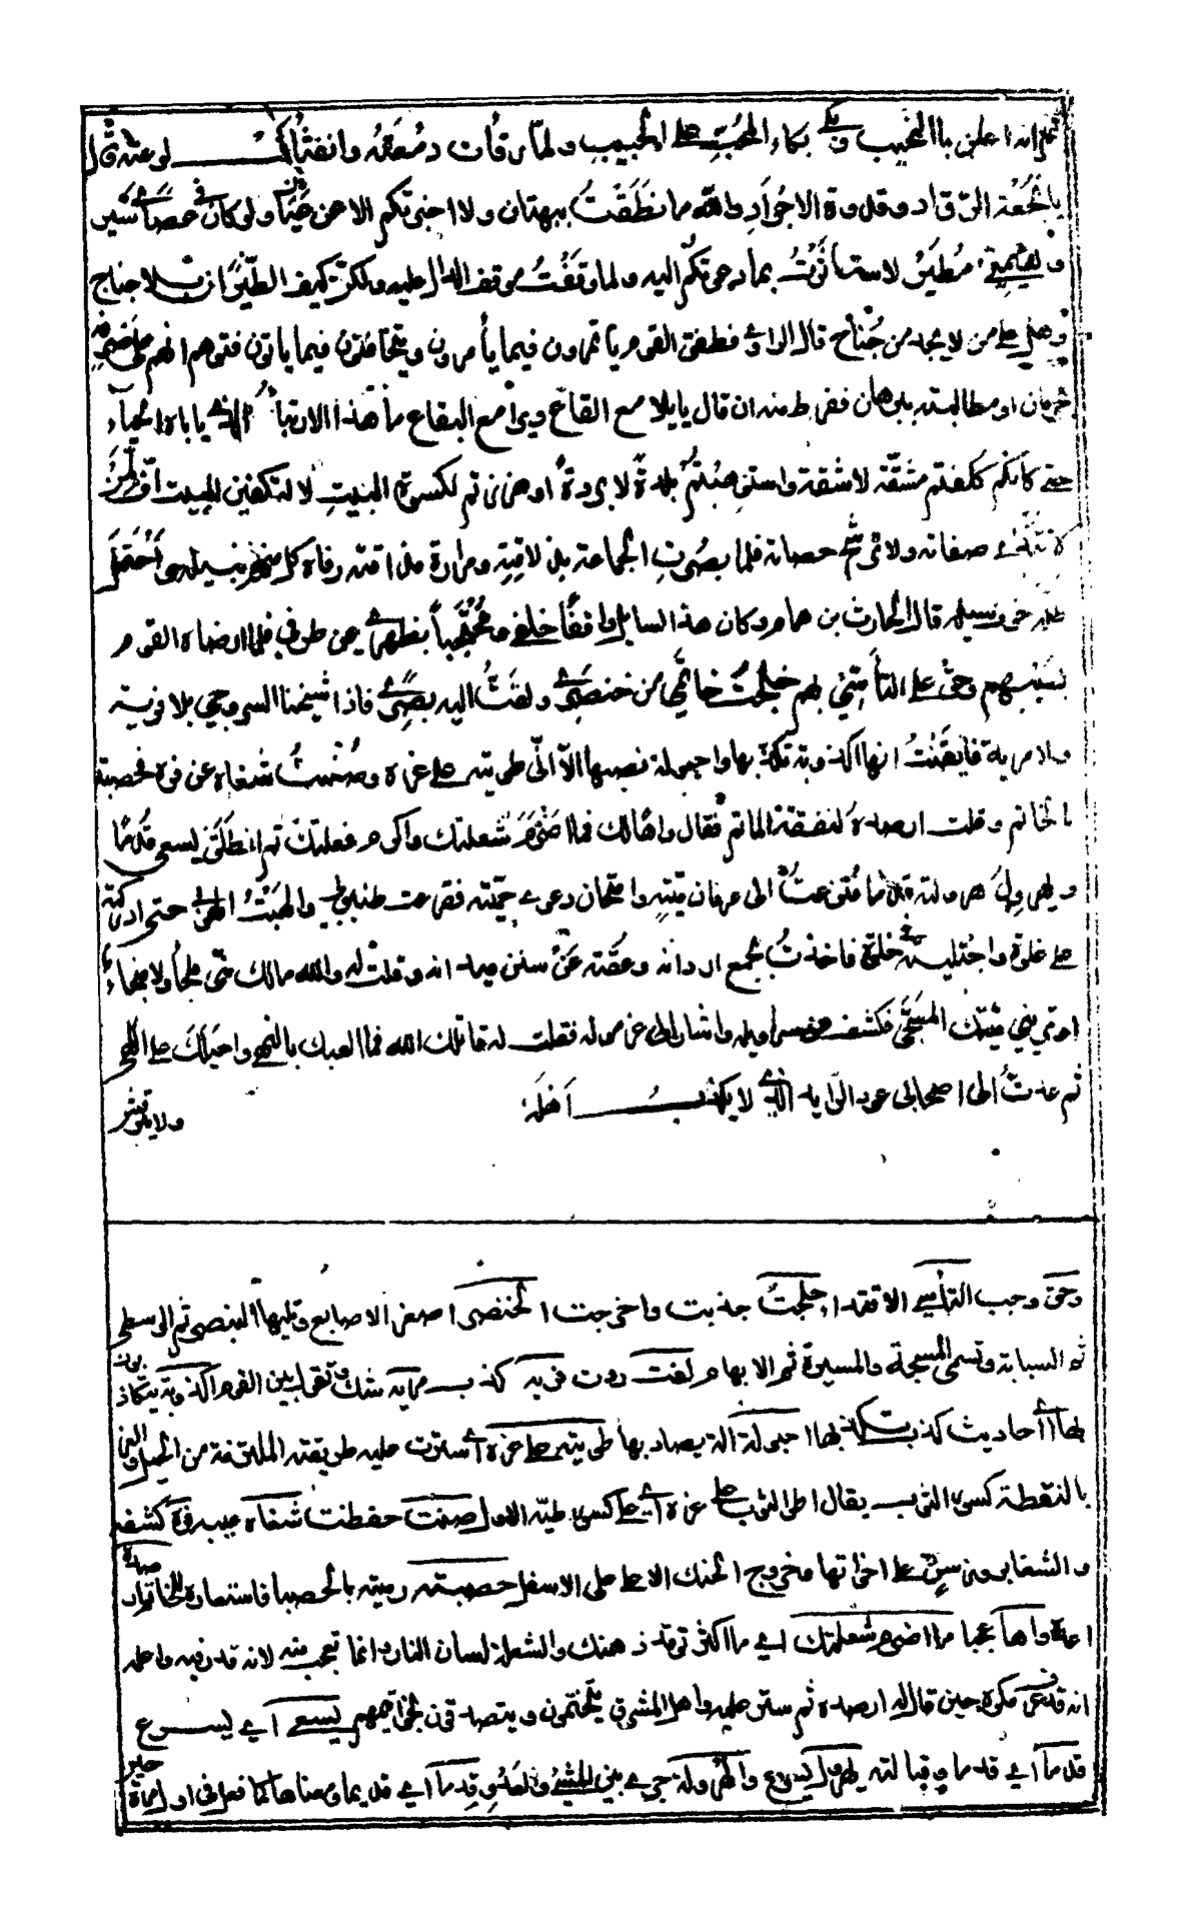 ثم انه اعلن بالنحيب وبكى بكاء المحب على الحبيب ولما رقأت دمعته وانفثأت لوعته قال
يا نجعة الرواد وقدوة الاجواد والله ما نطقت ببهتان ولا اخبرتكم الا عن عيان ولو كان في عصاي سير
ولغيمي مطير لاستأثرت بما دعوتكم اليه ولما وقفت موقف الدال عليه ولكن كيف الطيران بلا جناح
وهل على من لا يجد من جناح قال الراوي فطفق القوم ياتمرون فيما يأمرون ويتخافتون فيما ياتون فتوهم انهم
او مطالبته ببرهان ففرط منه ان قال يا يلامع القاع ويرامع البقاع ما هذا الارتياء الذي ياباه الحياء
حتى كانكم كلفتم مشقة لا شقة واستوهبتم بلدة لا بردة او هززتم لكسوة البيت لا لتكفين الميت اف لمن
لا تندى صفاته ولا ترشح حصاته فلما بصرت الجماعة بذلاقته ومرارة مذاقته رفاه كل منهم بنيله واحتمل
طله خوف سيله قال الحارث بن همام وكان هذا السايل واقفا خلفي ومحتجبا بظهري عن طرفي فلما ارضاه القوم
بسيبهم وحق علي التأسي بهم خلجت خاتمي من خنصري ولفت اليه بصري فاذا شيخنا السروجي بلا فرية
ولا مرية فايقنت انها اكذوبة تكذبها واحبولة نصبها الا اني طويته على غره وصنت شغاه عن فره فحصبته
بالخاتم وقلت ارصده لنفقة الماتم فقال واها لك فما اضرم شعلتك واكرم فعلتك ثم انطلق يسعى قدما
ويهرول هرولته قدما فنزعت الى عرفان ميته وامتحان دعوى حميته فقرعت ظنبوبي والهبت الهوبي حتى ادركته
على غلوة واجتليته في خلوة فاخذت بجمع اردانه وعقته عن سنن ميدانه وقلت له والله مالك مني ملجأ ولا منجاء
او تريني ميتك المسجى فكشف عن سراويله واشار الى غرموله فقلت له قاتلك الله فما العبك بالنهى واحيلك على اللهى
ثم عدت الى اصحابي عود الرايد الذي لا يكذب اهله
وحق وجب التأسي الاقتداء خلجت جذبت واخرجت الخنصر اصغر الاصابع وتليها البنصر ثم الوسطى
ثم السبابة وتسمى المسبحة والمسيرة ثم الابهام لفت ردت فرية كذب مرية شك وتقول بين القوم اكذوبة يتكاذبون
بها اي احاديث كذب تكذبها احبولة الة يصاد بها طويته على غره اي استرت عليه طريقته الملتفة من الحيل
بالنقطة كسر الثوب يقال اطو الثوب على غره اي على كسر طيه الاول صنت حفظت شغاه عيبه فره كشفه
والشغا بروز سن على اخواتها وخروج الحنك الاعلى على الاسفل حصبته رميته بالحصبا فاستعاره للخاتم ارصده
اعده واها عجبا ما اضرم شعلتك اي ما اكثر توقد ذهنك والشعلة لسان النار وانما تعجب منه لانه
انه قد مكره حين قال له ارصده ثم ستر عليه واهل المشرق يتختمون ويتصدقون بخواتيمهم يسعى اي يسرع
قدما اي قدما يهرول يسرع والهرولة جري بين المشي والعدو وقدما اي قديما ومعناها كما فعل في اول مرة